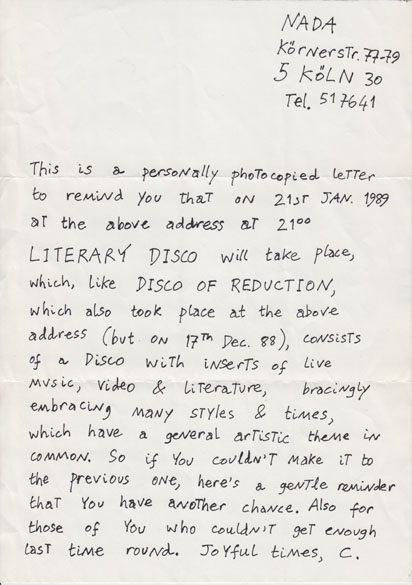 NADA
Körnerstr. 77-79
5 KÖLN 30
Tel. 517641
This is a personally photocopied letter
to remind you that on 21st JAN. 1989
at the above address at 21⁰⁰
LITERARY DISCO will take place,
which, like DISCO OF REDUCTION,
which also took place at the above
address (but on 17th Dec. 88), consists
of a Disco with inserts of live
music, video & literature, bracingly
embracing many styles & times,
which have a general artistic theme in
common. So if you couldn't make it to
the previous one, here's a gentle reminder
that you have another chance. Also for
those of you who couldn't get enough
last time round. Joyful times, C.